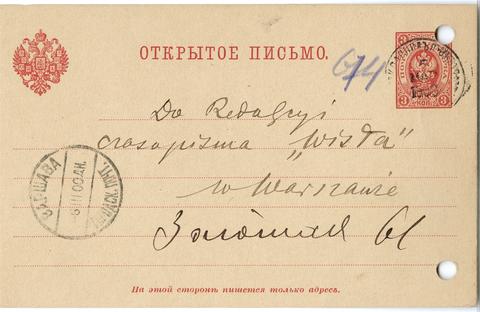 ОТКРЫТОЕ ПИСЬМО.
674
3 3
Do Redakcyi
czasopisma „Wisła"
w Warszawie
Злотая 61
ВАРШАВА
На этой сторонѣ пишется только адресъ.